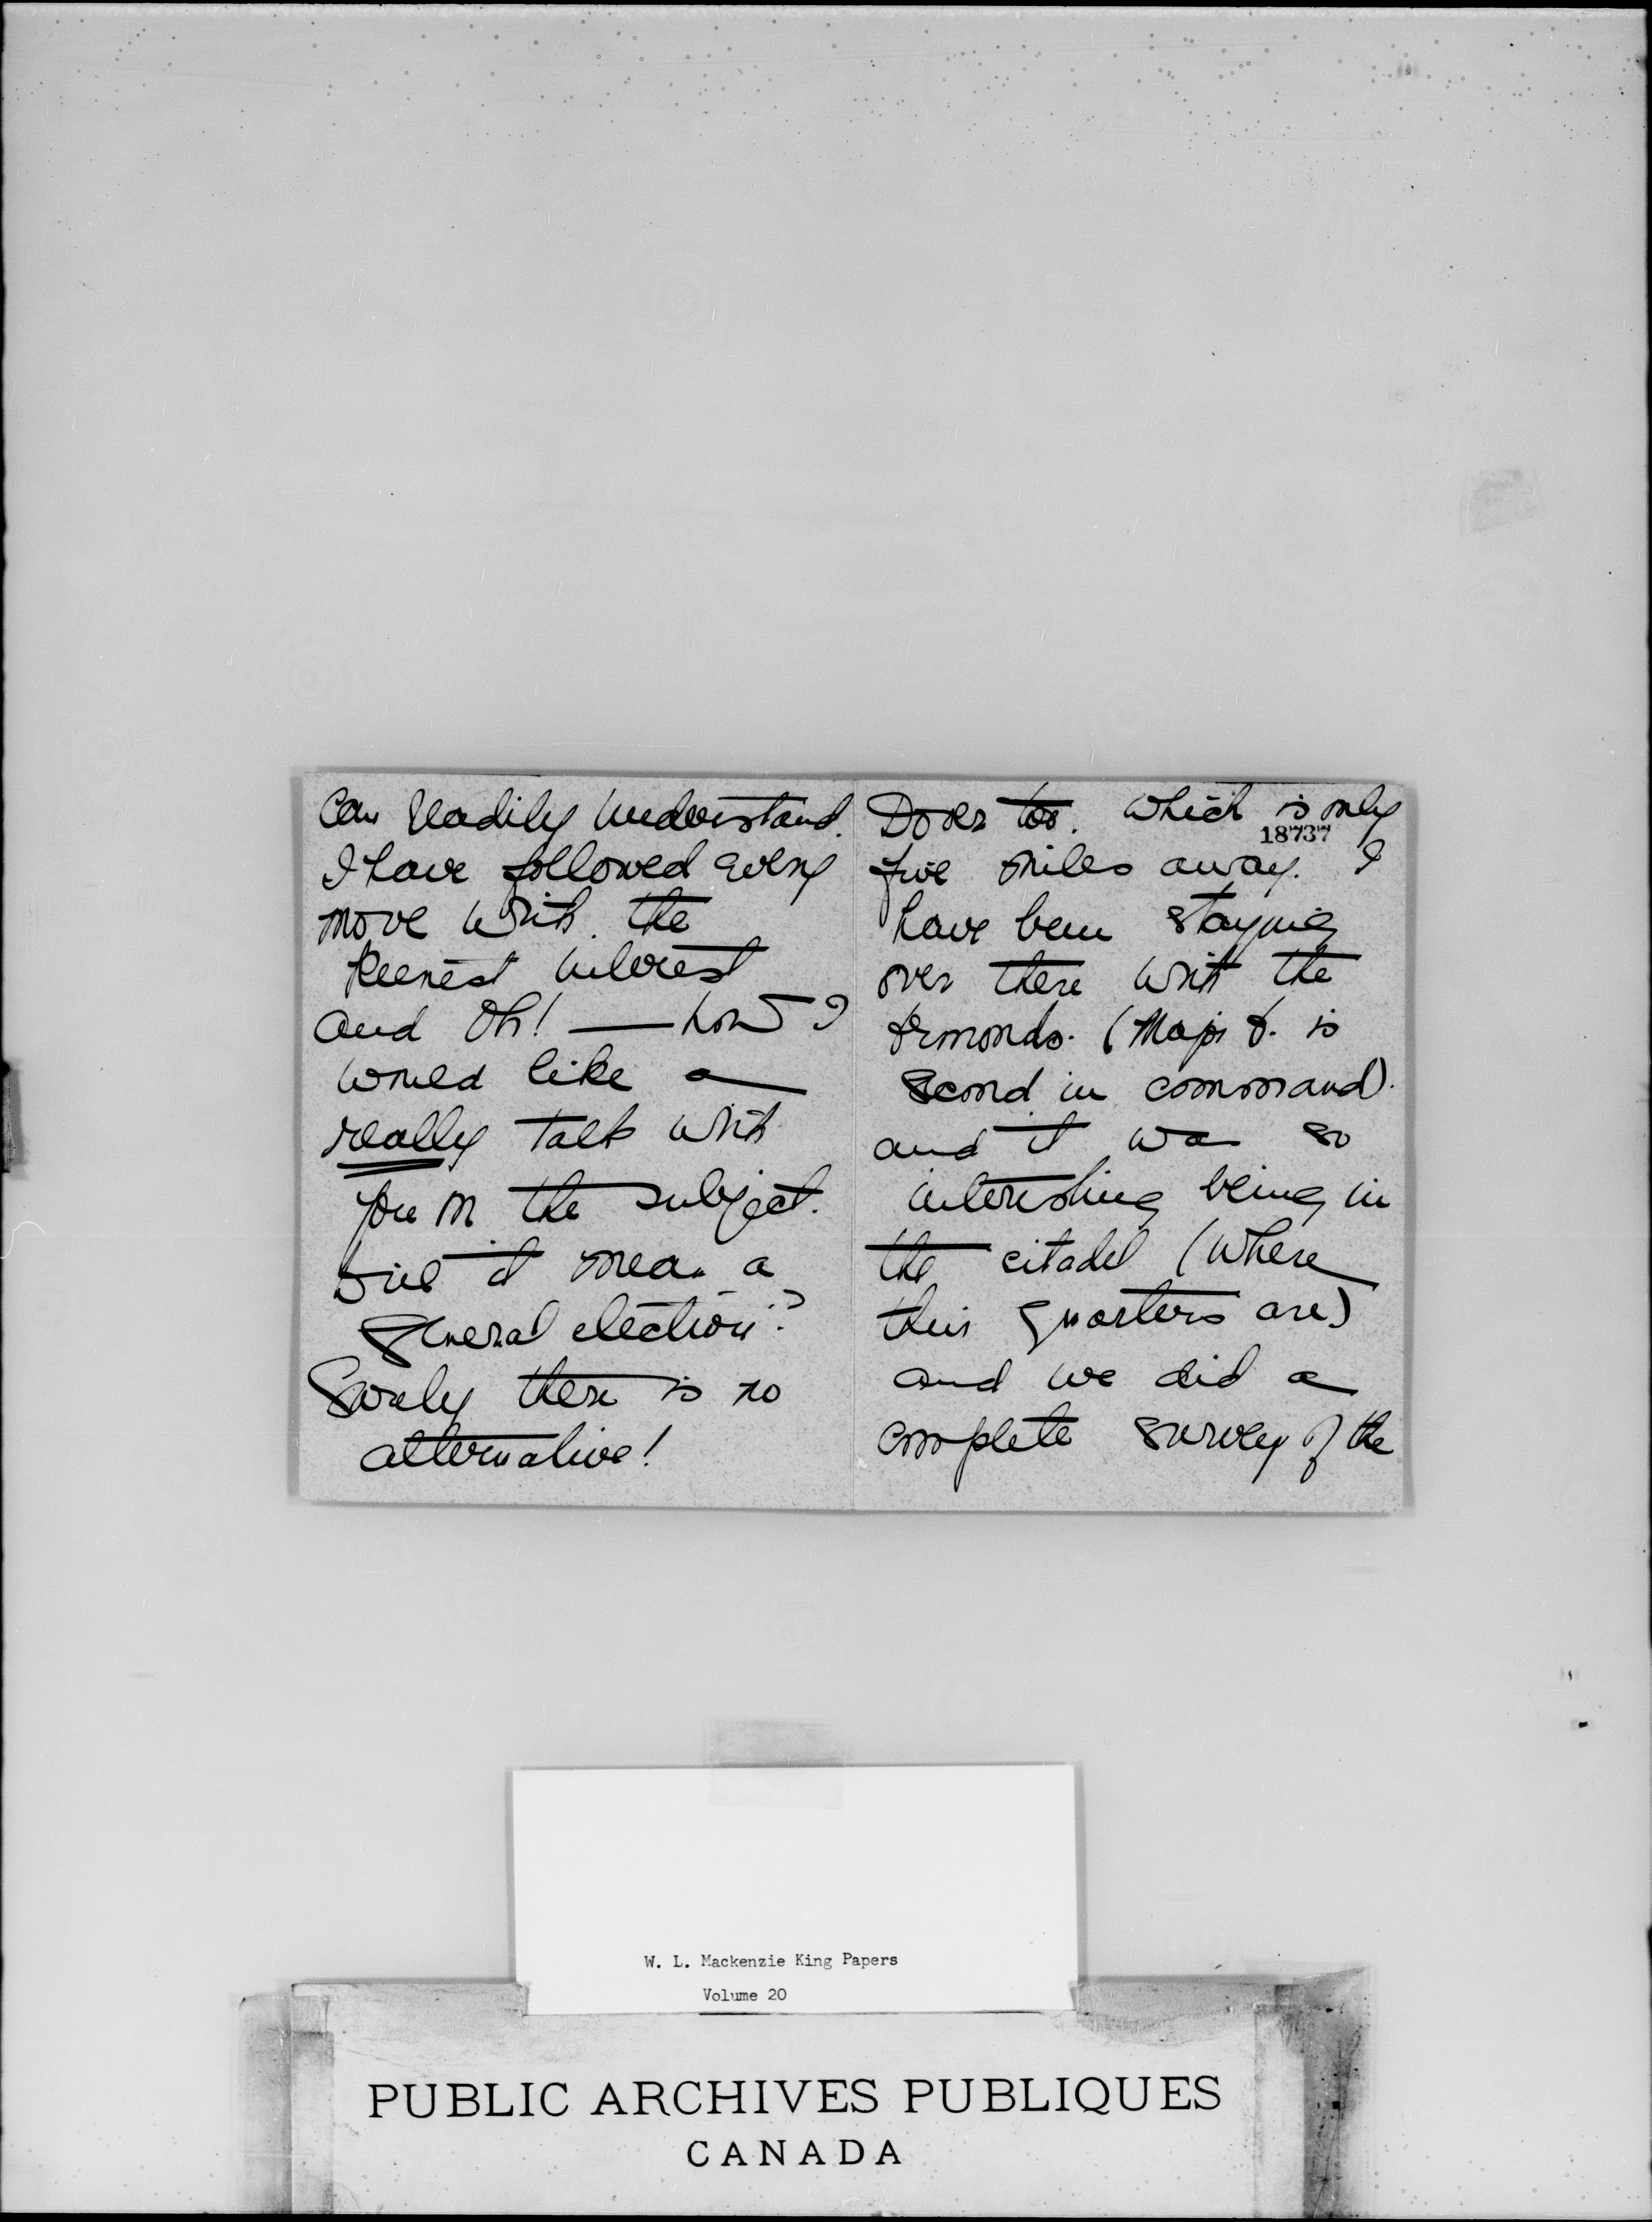 Can readily understand.
I have followed every
move with the
keenest interest
and Oh! — how I
would like a
really talk with
you on the subject.
Will it mean a
general election?
Surely there is no
alternative!
Dover too. Which is only
18737
five miles away. I
have been staying
over there with the
(Major is
second in command)
and it was so
interesting being in
the citadel (where
their quarters are)
and we did a
complete survey of the
W. L. Mackenzie King Papers
Volume 20
PUBLIC ARCHIVES PUBLIQUES
CANADA